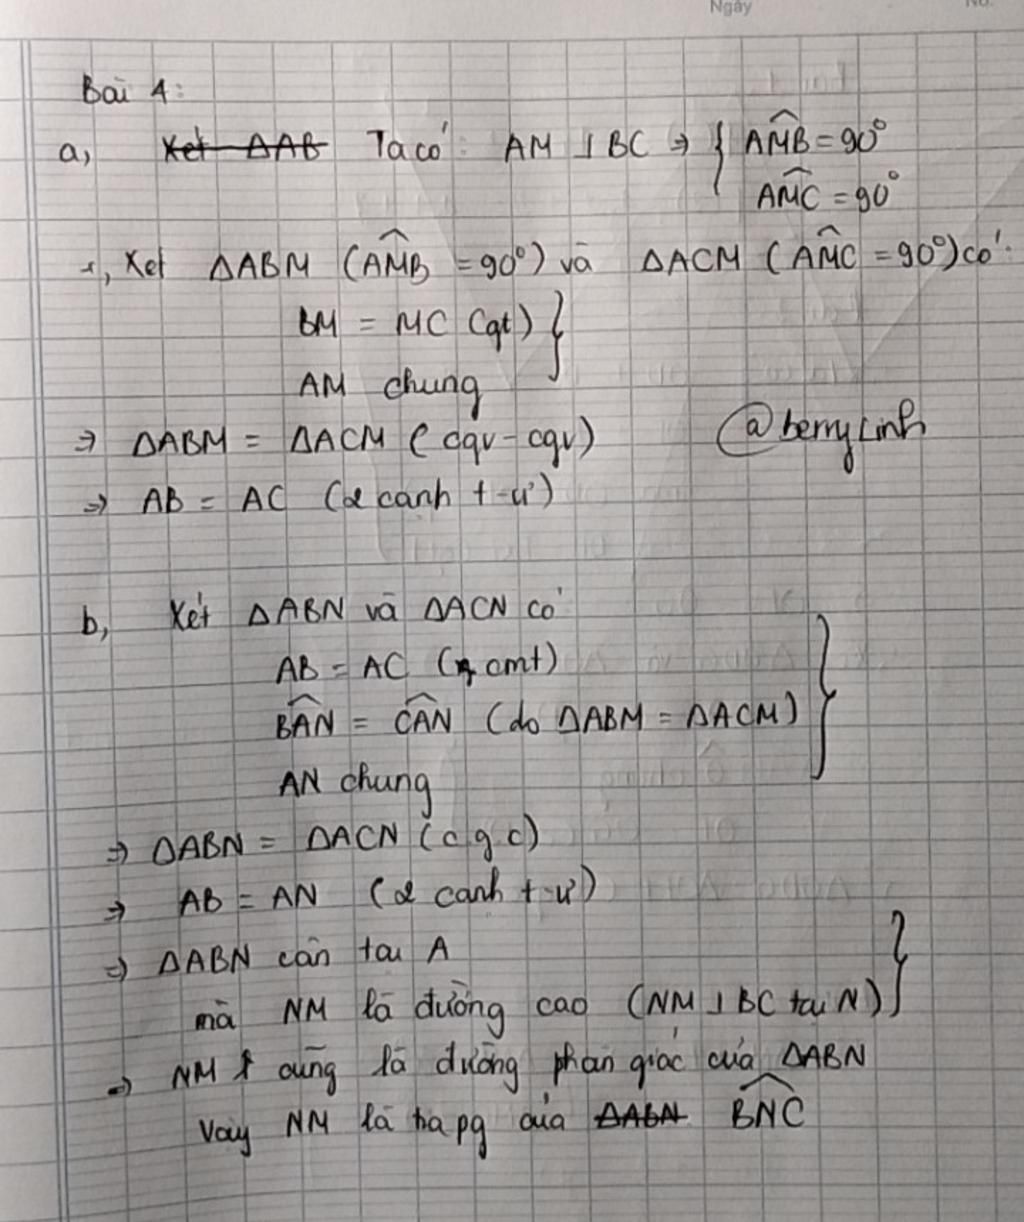 Ngày No.
Bài 4:
a, Xét ΔAB Ta có: AM ⊥ BC ⇒ { AMB̂ = 90°
AMĈ = 90°
+, Xét ΔABM (AMB̂ = 90°) và ΔACM (AMĈ = 90°) có:
BM = MC (gt) }
AM chung
⇒ ΔABM = ΔACM (cgv - cgv) @berryLinh
⇒ AB = AC (2 cạnh t-ư)
b, Xét ΔABN và ΔACN có
AB = AC (cmt)
BAN̂ = CAN̂ (do ΔABM = ΔACM) }
AN chung
⇒ ΔABN = ΔACN (c g c)
⇒ AB = AN (2 cạnh t-ư)
⇒ ΔABN cân tại A
mà NM là đường cao (NM ⊥ BC tại N) }
⇒ NM cũng là đường phân giác của ΔABN
Vậy NM là tia pg của ΔABN BNĈ